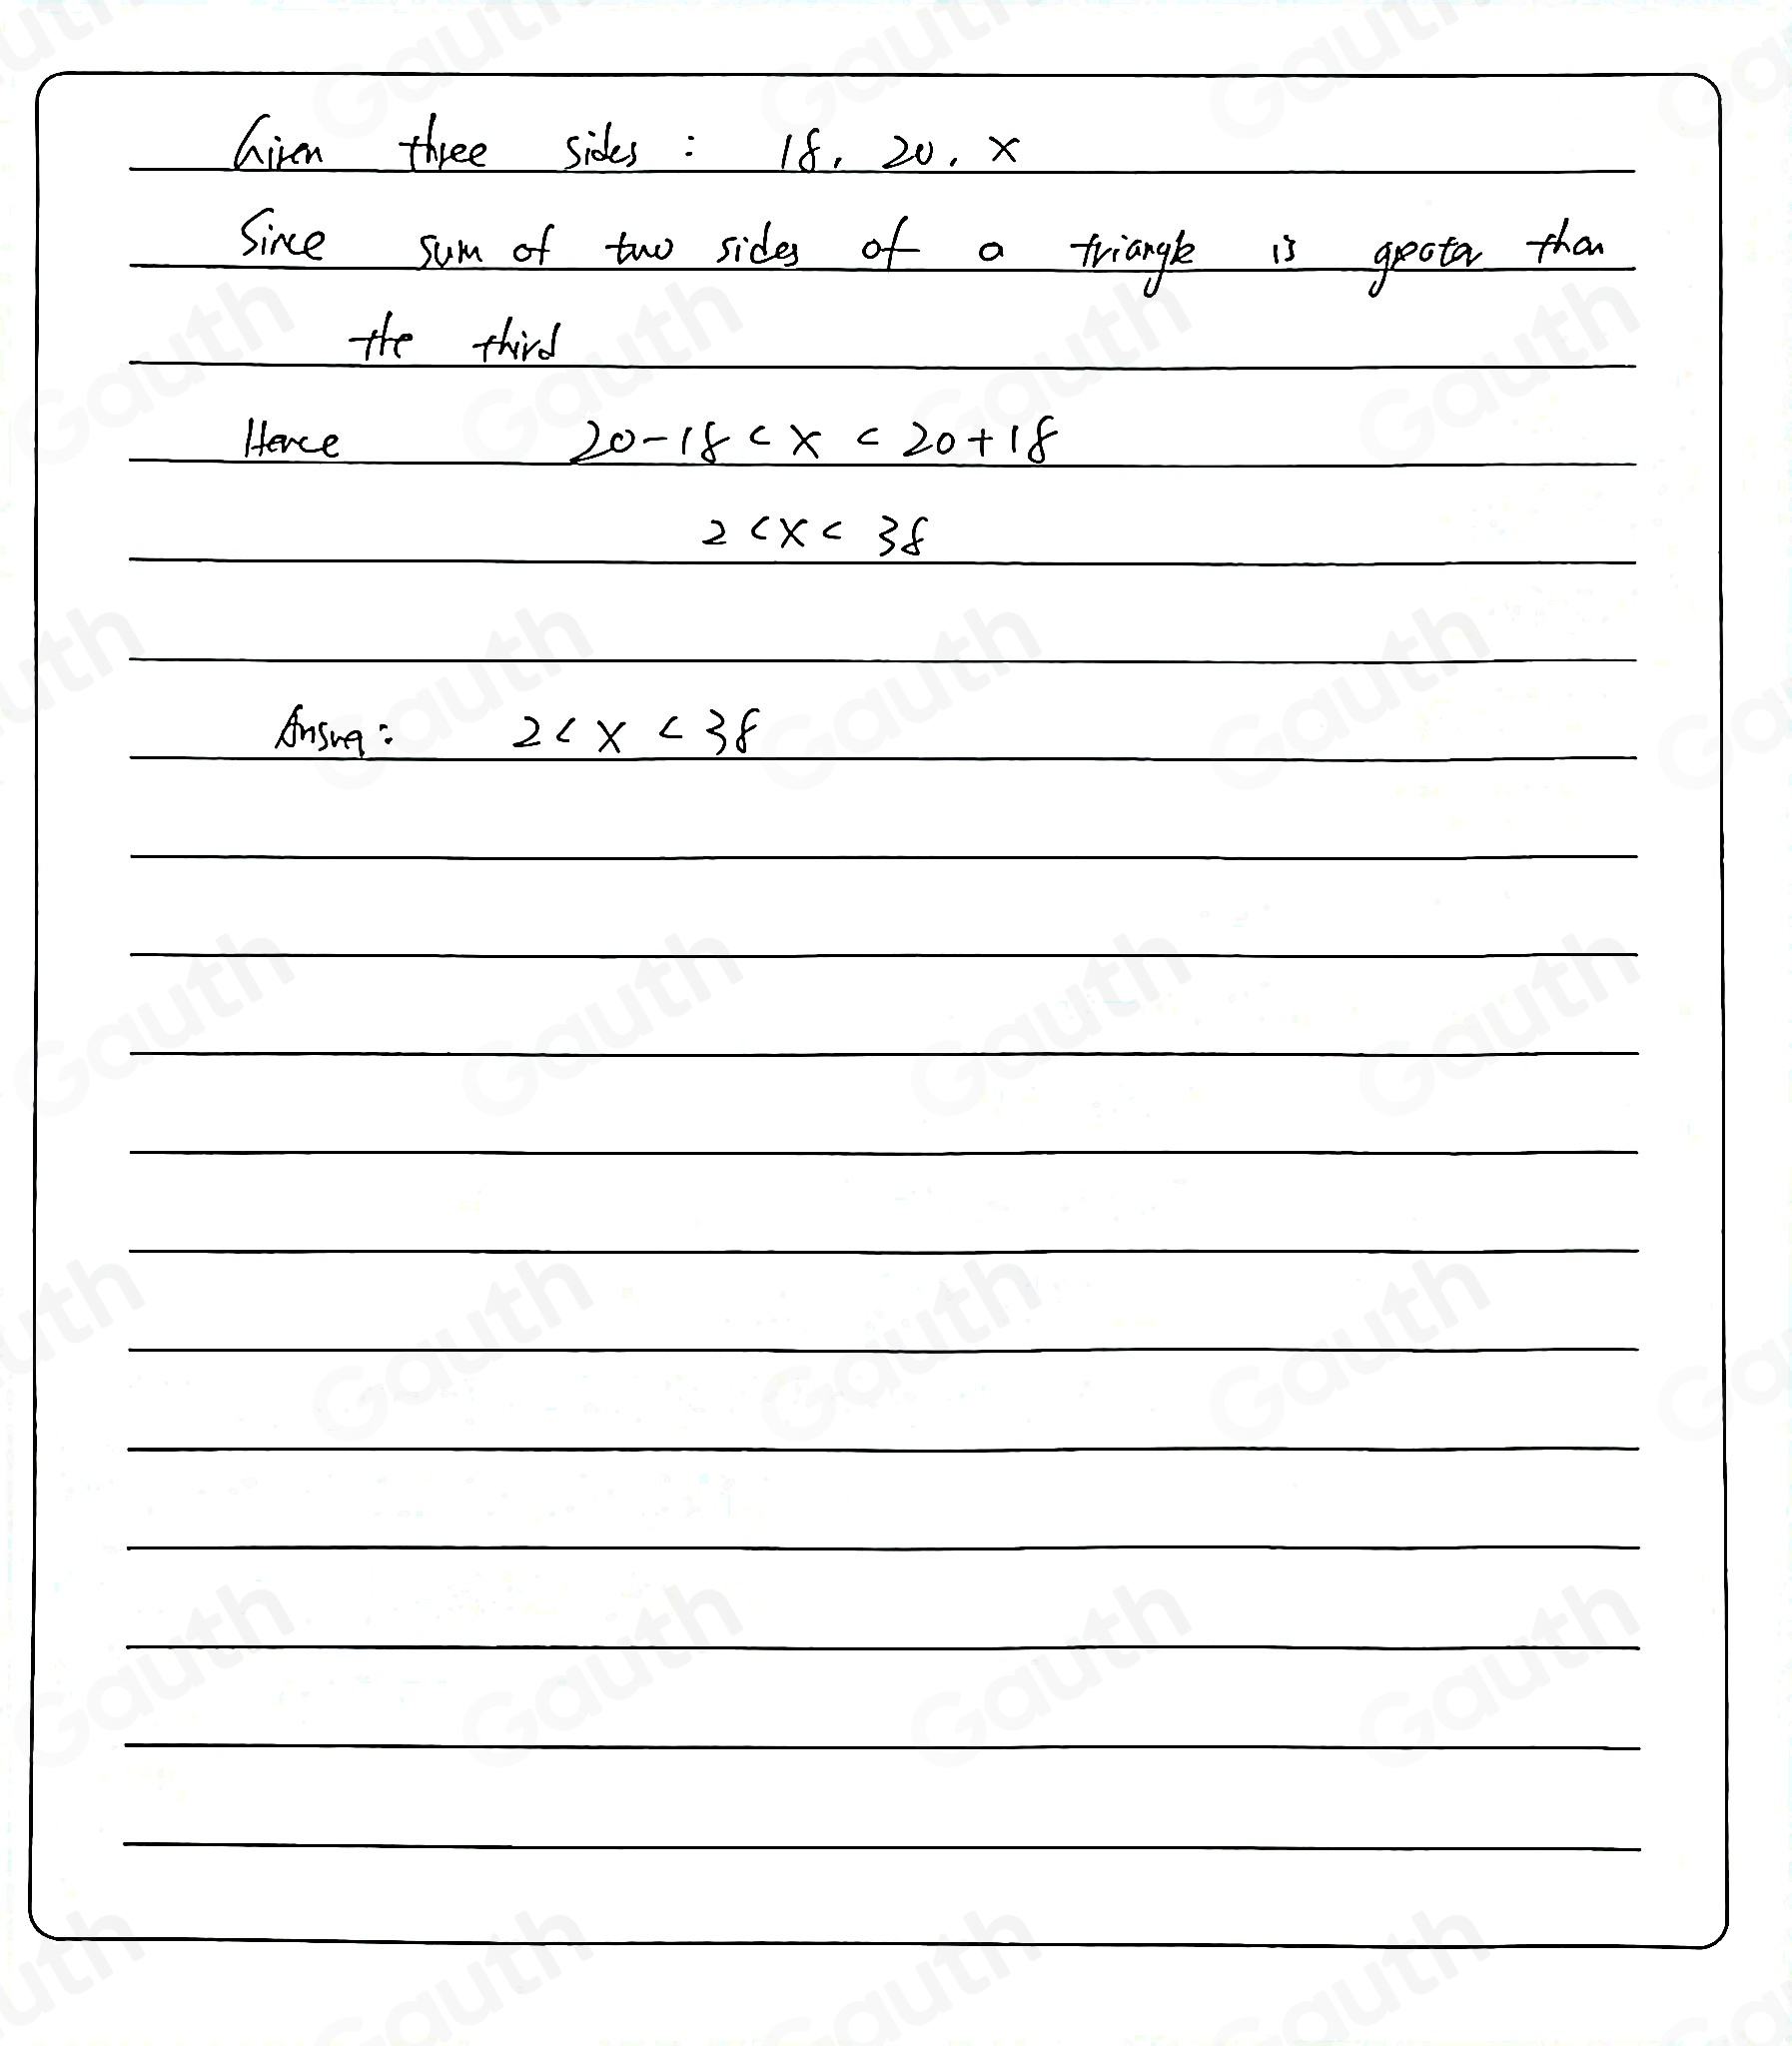 Given three sides : 18, 20, x
Since sum of two sides of a triangle is greater than
the third
Hence 20-18 < x < 20+18
2 < x < 38
Answer: 2 < x < 38